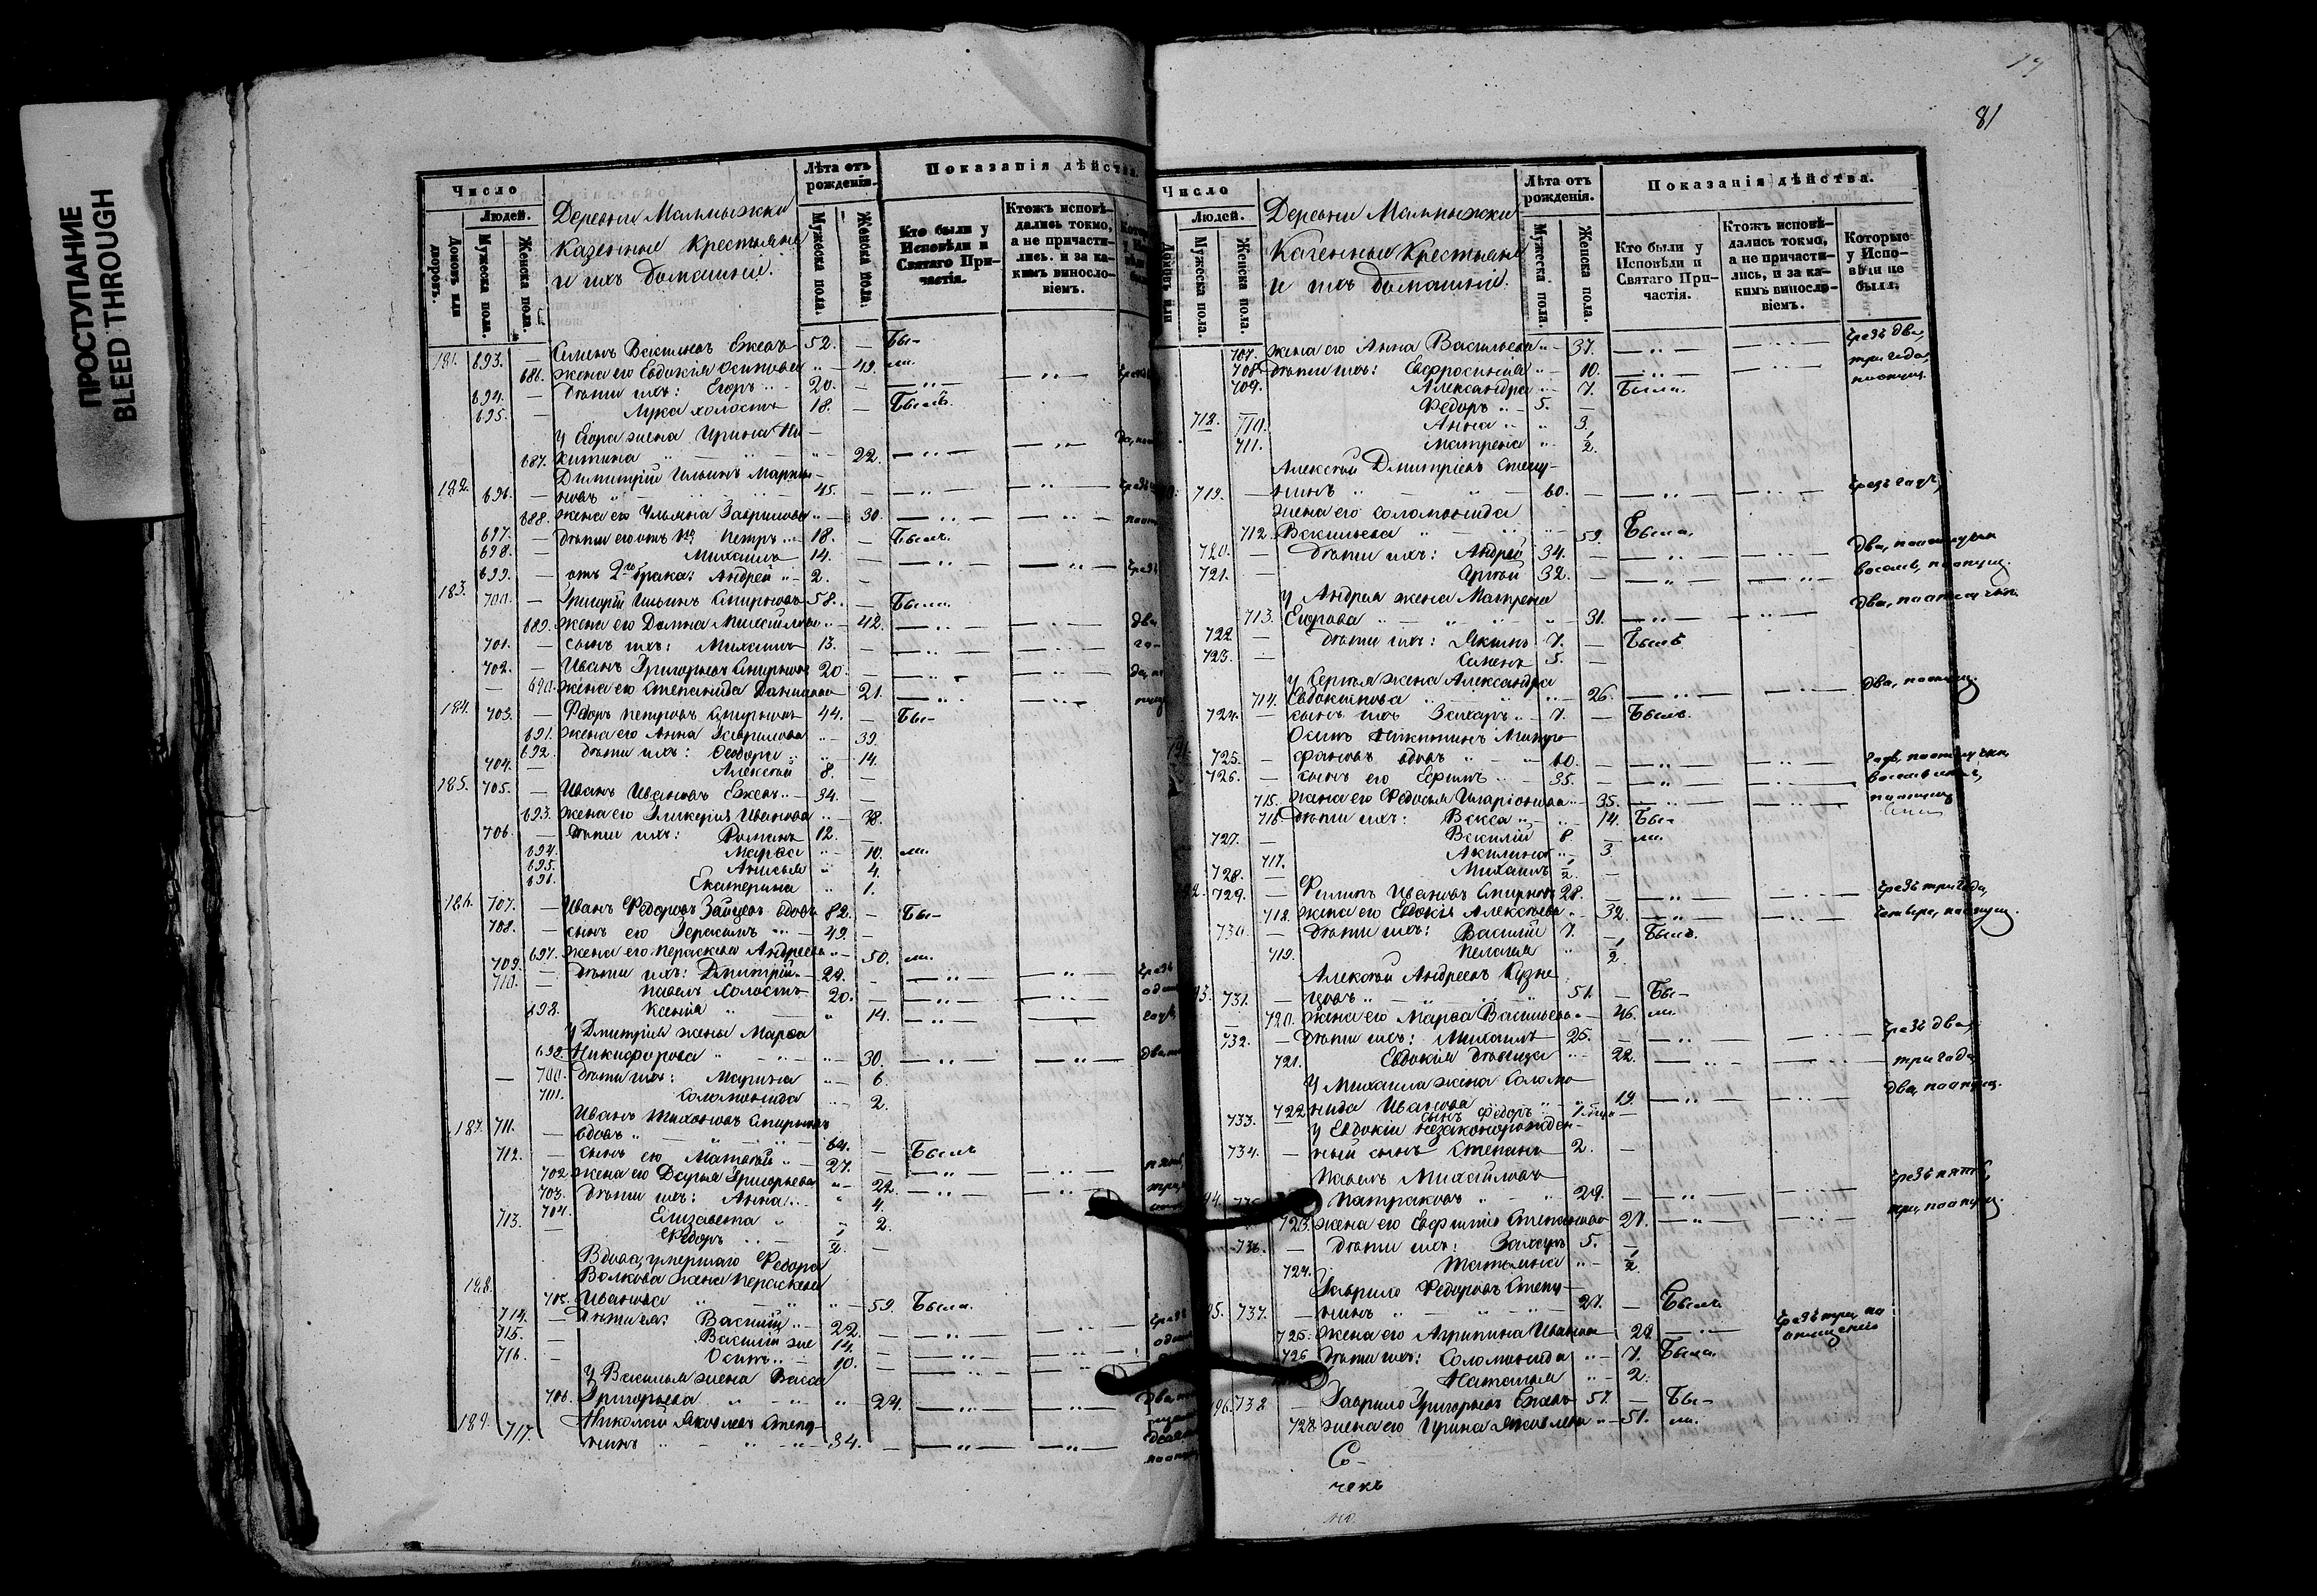 ПРОСТУПАНИЕ
BLEED THROUGH
Число
Людей.
Домовъ или дворовъ.
Мужеска пола.
Женска пола.
Деревни Малмыжки
Казенные Крестьяне
и ихъ домашніе.
Лѣта отъ рожденія.
Мужеска пола.
Женска пола.
Показанія дѣйства.
Кто были у Исповѣди и Святаго Причастія.
Ктожъ исповѣдались токмо, а не причастились, и за какимъ винословіемъ.
181. 693. — Семенъ Васильевъ Ежевъ 52. — Бы-
686. жена его Евдокія Осипова " — 49. ли.
694. — дѣти ихъ: Егоръ " — 20. —
695. — Лука холостъ 18. — Былъ.
у Егора жена Ирина Ни-
687. китина " — 22.
182. Димитрій Ильинъ Марты-
696. — новъ " — 45. —
688. жена его Ульяна Гаврилова " — 30.
697. — дѣти его отъ 1го Петръ 18. — Былъ.
698. — Михаилъ 14. —
699. — отъ 2го брака: Андрей " — 2. —
183. 700. — Григорій Ильинъ Смирновъ 58. — Были.
689. жена его Домна Михайлова " — 42.
701. — сынъ ихъ: Михаилъ 13. —
702. — Иванъ Григорьевъ Смирновъ 20. —
— 690. жена его Степанида Данилова 21.
184. 703. — Федоръ Петровъ Смирновъ 44. — Бы-
691. жена его Анна Гаврилова " — 39.
692. дѣти ихъ: Феодора " 14.
704. — Алексѣй 8. —
185. 705. — Иванъ Ивановъ Ежевъ " — 34. —
693. жена его Гликерія Иванова " — 38.
706. — дѣти ихъ: Романъ 12. —
694. Марѳа " — 10. ли.
695. Анисья " 4.
696. Екатерина " 1.
186. 707. — Иванъ Федоровъ Зайцевъ вдовъ 82. — Бы-
708. — сынъ его Герасимъ " — 49. —
697. жена его Параскева Андреева " — 50. ли.
709. — дѣти ихъ: Дмитрій — 24. —
710. — Павелъ холостъ 20. —
698. Ксенія " 14.
у Дмитрія жена Марѳа
699. Никифорова " — 30.
— 700. дѣти ихъ: Марина " — 6.
701. Соломонида " 2.
187. 711. Иванъ Тихоновъ Смирновъ
— вдовъ " — 64. —
712. — сынъ его Матвѣй " — 27. — Былъ
702. жена его Дарья Григорьева " — 22.
703. дѣти ихъ: Анна " 4.
704. Елизавета " 2.
713. — Федоръ " — 1/2. —
Вдова, умершаго Федора
188. Волкова жена Параскева
705. Иванова " — 59. Была.
714. — дѣти ея: Василій " — 22. —
715. — Василій же 14. —
716. — Осипъ " — 10. —
у Василья жена Васса
706. Григорьева " — 24.
189. 717. Николай Яковлевъ Степу-
нинъ " — 34. —
81
Число
Людей.
Мужеска пола.
Женска пола.
Деревни Малмыжки
Казенные Крестьяне
и ихъ домашніе.
Лѣта отъ рожденія.
Мужеска пола.
Женска пола.
Показанія дѣйства.
Кто были у Исповѣди и Святаго Причастія.
Ктожъ исповѣдались токмо, а не причастились, и за какимъ винословіемъ.
Которые у Исповѣди не были.
707. жена его Анна Васильева " — 37. чрезъ два,
708. дѣти ихъ: Евфросинія " — 10. три года,
709. Александра " — 7. Была. поопущ.
718. Федоръ " — 5. —
710. Анна " — " 3.
711. Матрена " 1/2.
Алексѣй Дмитріевъ Степу-
719. — нинъ " — 60. — чрезъ годъ,
жена его Соломонида
712. Васильева " — 59. Была.
720. — дѣти ихъ: Андрей 34. — два, поопущен
721. — Сергѣй 32. — восемь, поопущ.
у Андрея жена Матрена
713. Егорова " — 31. два, поопущен.
722. — дѣти ихъ: Якимъ 7. — Былъ.
723. — Семенъ 5. —
у Сергѣя жена Александра
714. Евдокимова " — 26. два, поопущ.
724. — сынъ ихъ Захаръ " — 7. — Былъ.
Осипъ Никитинъ Митро-
725. — фановъ вдовъ " — 60. —
726. — сынъ его Ефимъ " — 35. —
715. жена его Федосья Иларіонова " — 35. поопущ.
716. дѣти ихъ: Васса " — 14. Бы-
727. — Василій 8. — ли.
717. Акилина " — 3.
728. Михаилъ 1/2. —
729. — Филипъ Ивановъ Смирновъ 28. — чрезъ три года,
718. жена его Евдокія Алексѣева " — 32. четыре, поопущ.
730. — дѣти ихъ: Василій 7. — Былъ.
719. Пелагея " 1/2.
Алексѣй Андреевъ Кузне-
731. — цовъ " — 51. — Бы-
720. жена его Марѳа Васильева " — 46. ли.
732. — дѣти ихъ: Михаилъ 25. — чрезъ два,
721. Евдокія дѣвица " — 22. три года,
у Михаила жена Соломо-
722. нида Иванова " 19. два, поопущ.
733. сынъ Федоръ "
у Евдокіи незаконорожден-
734. — ный сынъ Степанъ 2. —
Павелъ Михайловъ
Патраковъ " — 29. — чрезъ пять,
723. жена его Евфимія Степанова 27. три, поопущ.
736. — дѣти ихъ: Захаръ 5. —
724. Татьяна " — 1/2.
Гаврило Федоровъ Степу-
737. — нинъ " — 27. — Былъ.
725. жена его Агрипина Иванова 28. чрезъ три, по опущенію
726. дѣти ихъ: Соломонида " — 7. Была.
Наталья " — 2.
738. — Гаврило Григорьевъ Ежевъ 57. — Бы-
728. жена его Ирина Яковлева " — 51. ли.
Со-
чекъ